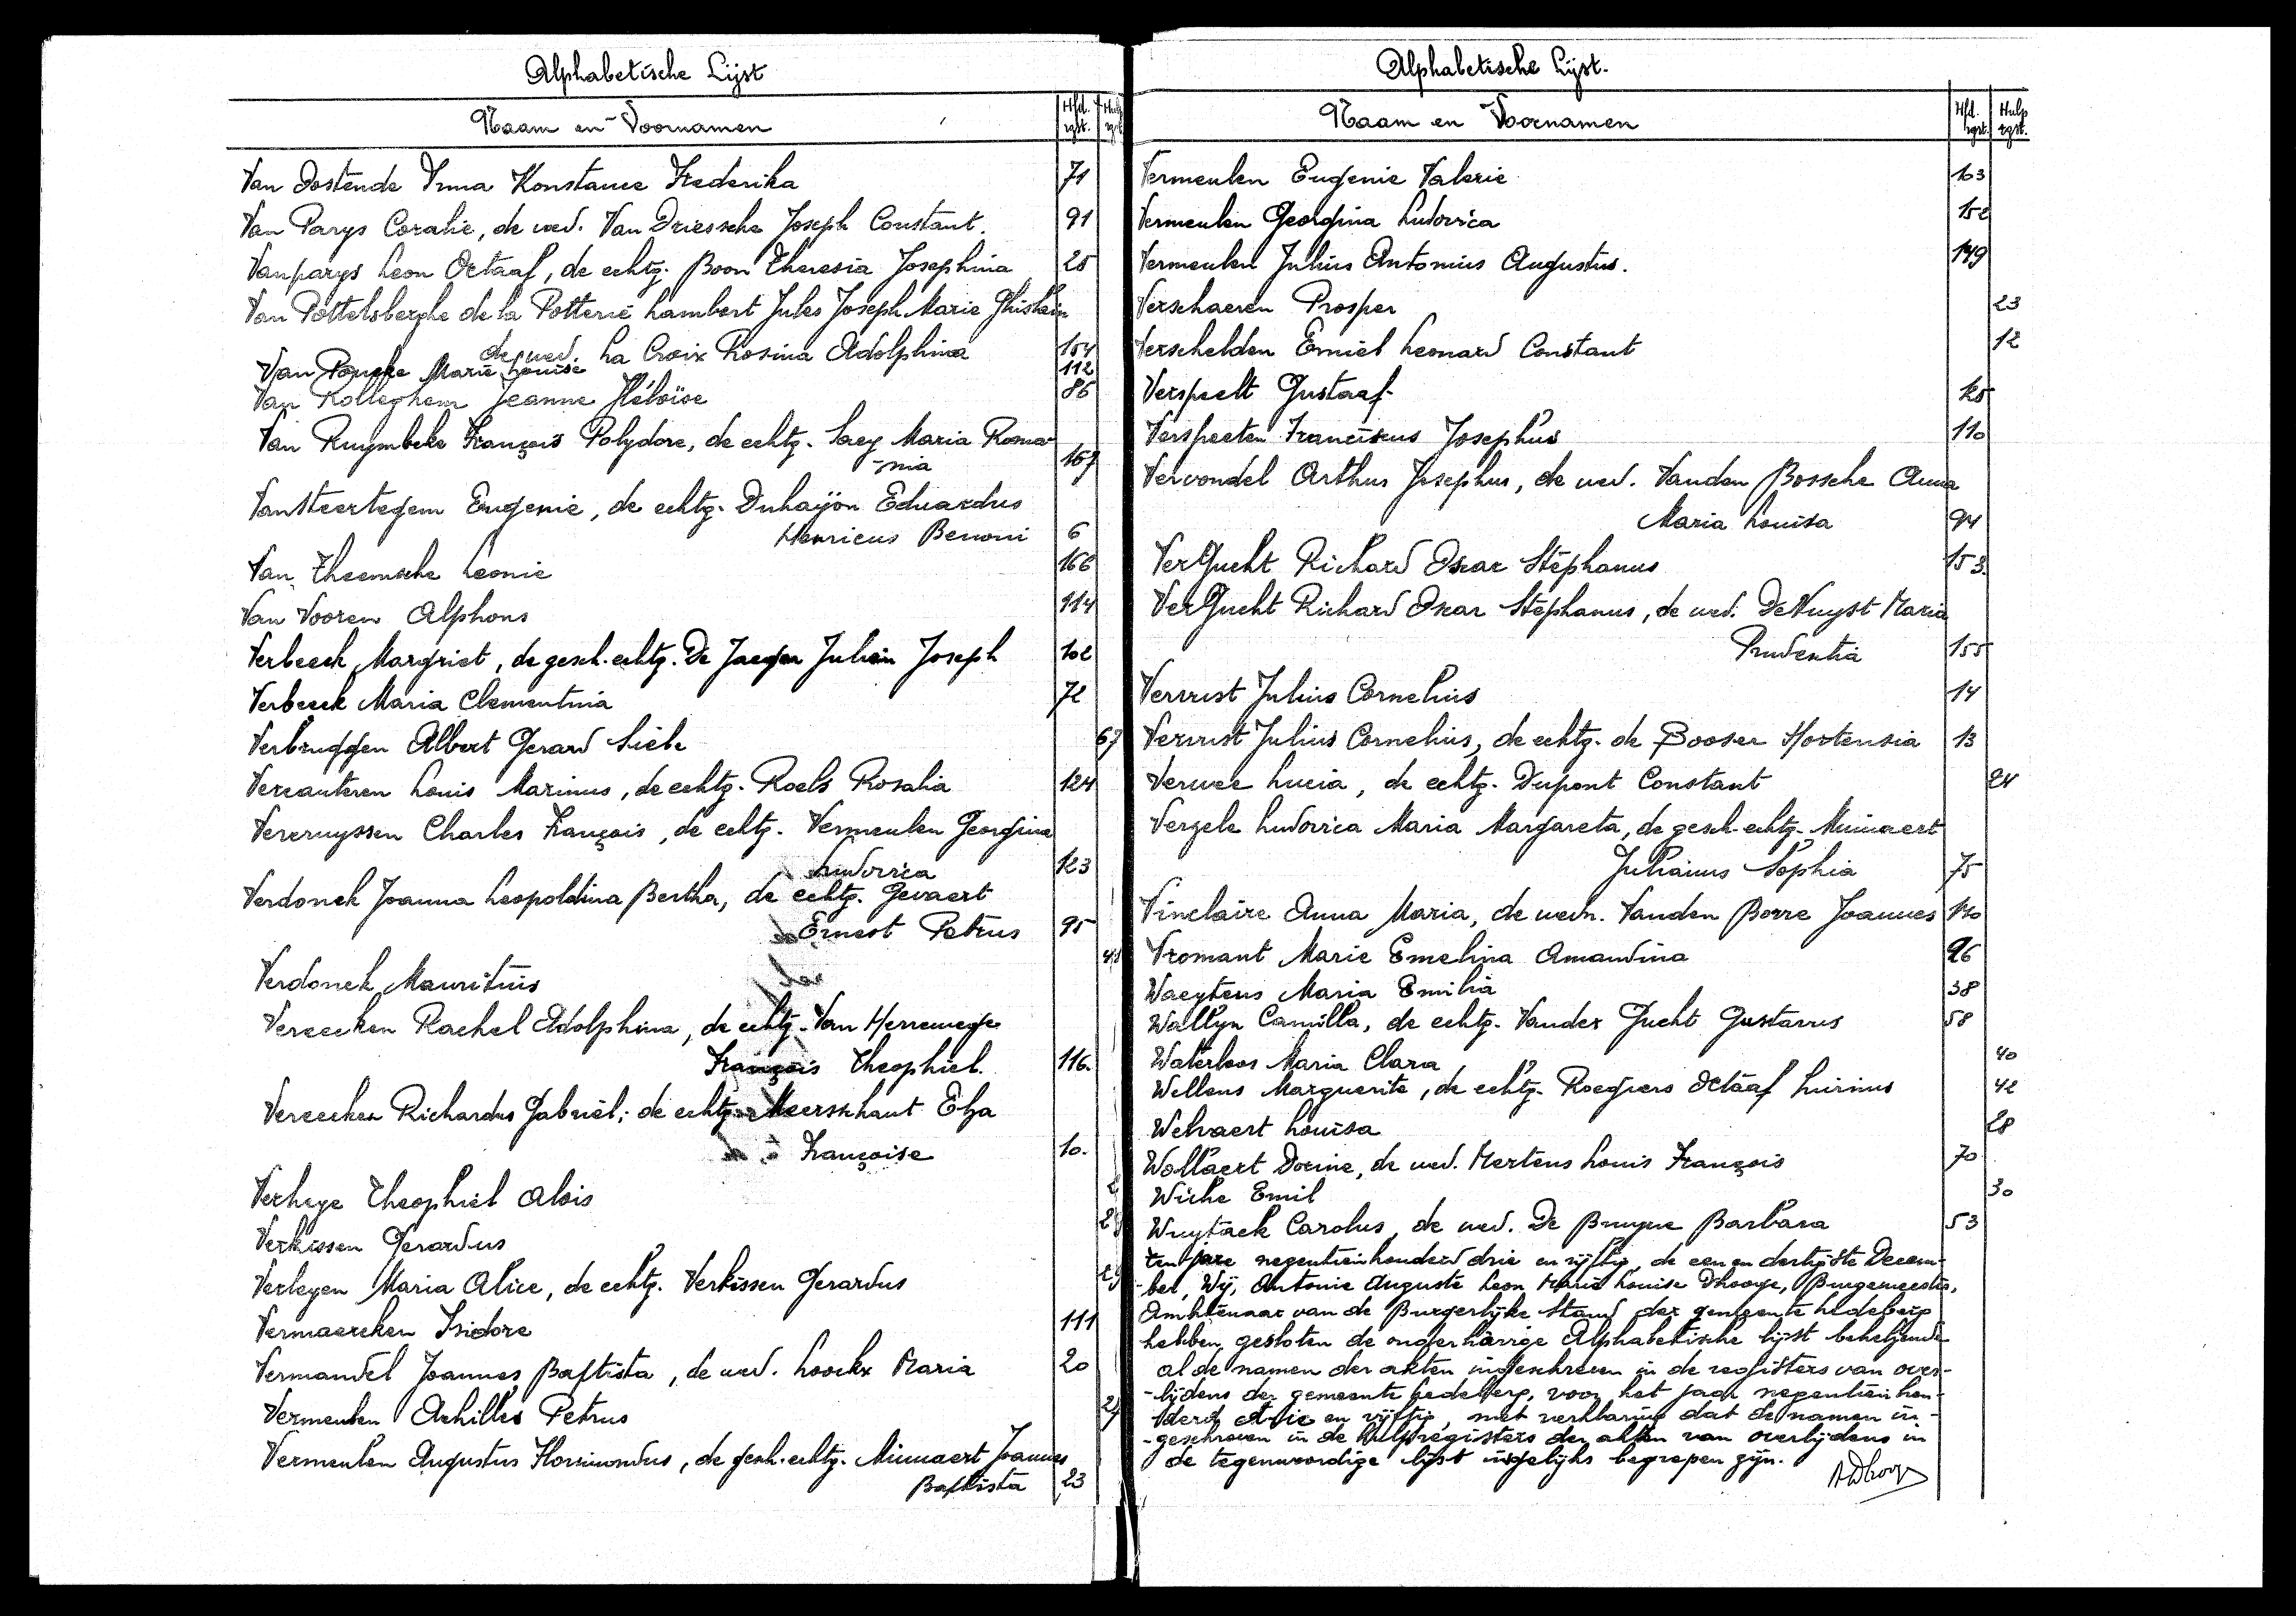 Alphabetische Lijst
Naam en Voornamen
Hfd. rgst.
Hulp rgst.
Van Oostende Irma Konstance Frederika 71
Van Parys Coralie, de wed. Van Driessche Joseph Constant. 91
Vanparys Leon Octaaf, de echtg. Boon Theresia Josephina 25
Van Pottelsberghe de la Potterie Lambert Jules Joseph Marie Ghislain
de wed. La Croix Rosina Adolphina 154
Van Poucke Marie Louise 112
Van Rolleghem Jeanne Héloïse 86
Van Ruymbeke François Polydore, de echtg. Saey Maria Roma-
-nia 167
Vansteertegem Eugenie, de echtg. Duhayon Eduardus
Henricus Benoni 6
Van Theemsche Leonie 166
Van Vooren Alphons 114
Verbeeck Margriet, de gesch. echtg. De Jaeger Julien Joseph 102
Verbeeck Maria Clementina 72
Verbruggen Albert Gerard Siebe 67
Vercauteren Louis Marinus, de echtg. Roels Rosalia 124
Vercruyssen Charles François, de echtg. Vermeulen Georgina
Ludovica 123
Verdonck Joanna Leopoldina Bertha, de echtg. Gevaert
Ernest Petrus 95
Verdonck Mauritius
Vereecken Rachel Adolphina, de echtg. Van Herrewege
François Theophiel. 116.
Vereecken Richardus Gabriël, de echtg. Meerschaut Elza
Françoise 10.
Verheye Theophiel Alois
Verkissen Gerardus
Verleyen Maria Alice, de echtg. Verkissen Gerardus
Vermaercken Isidore 111
Vermandel Joannes Baptista, de wed. Loockx Maria 20
Vermeulen Achilles Petrus
Vermeulen Augustus Florimondus, de gesch. echtg. Minnaert Joannes
Baptista 23
Alphabetische Lijst.
Naam en Voornamen
Hfd. rgst.
Hulp rgst.
Vermeulen Eugenie Valerie 103
Vermeulen Georgina Ludovica 152
Vermeulen Julius Antonius Augustus. 149
Verschaeren Prosper 23
Verschelden Emiel Leonard Constant 12
Verspeelt Gustaaf 125
Verspeeten Franciscus Josephus 110
Vervondel Arthur Josephus, de wed. Vanden Bossche Anna
Maria Louisa 94
VerGucht Richard Oscar Stéphanus 153.
VerGucht Richard Oscar Stéphanus, de wed. DeNuyst Maria
Prudentia 155
Vervust Julius Cornelius 14
Vervust Julius Cornelius, de echtg. de Booser Hortensia 13
Verwee Lucia, de echtg. Dupont Constant 24
Verzele Ludovica Maria Margareta, de gesch. echtg. Minnaert
Julianus Sophia 75
Vinclaire Anna Maria, de wedn. Vanden Borre Joannes 130
Vromant Marie Emelina Amandina 96
Waeytens Maria Emilia 38
Wallyn Camilla, de echtg. Vander Gucht Gustavus 58
Waterloos Maria Clara 40
Wellens Marguerite, de echtg. Roegiers Octaaf Livinus 42
Welvaert Louisa 28
Wollaert Dorine, de wed. Mertens Louis François 70
Wiche Emil 30
Wuytack Carolus, de wed. De Bruyne Barbara 53
ten jare negentienhonderd drie en vijftig, de een en dertigste Decem-
-ber, Wij, Antonie Auguste Leon Marie Louise Dhooge, Burgemeester,
Ambtenaar van de Burgerlijke Stand der gemeente Ledeberg
hebben gesloten de ongerhavige Alphabetische lijst behelzende
al de namen der akten ingeschreven in de registers van over-
-lijdens der gemeente Ledeberg, voor het jaar negentien hon-
-derd drie en vijftig, met verklaring dat de namen in-
-geschreven in de hulpregisters der akten van overlijdens in
de tegenwoordige lijst insgelijks begrepen zijn.